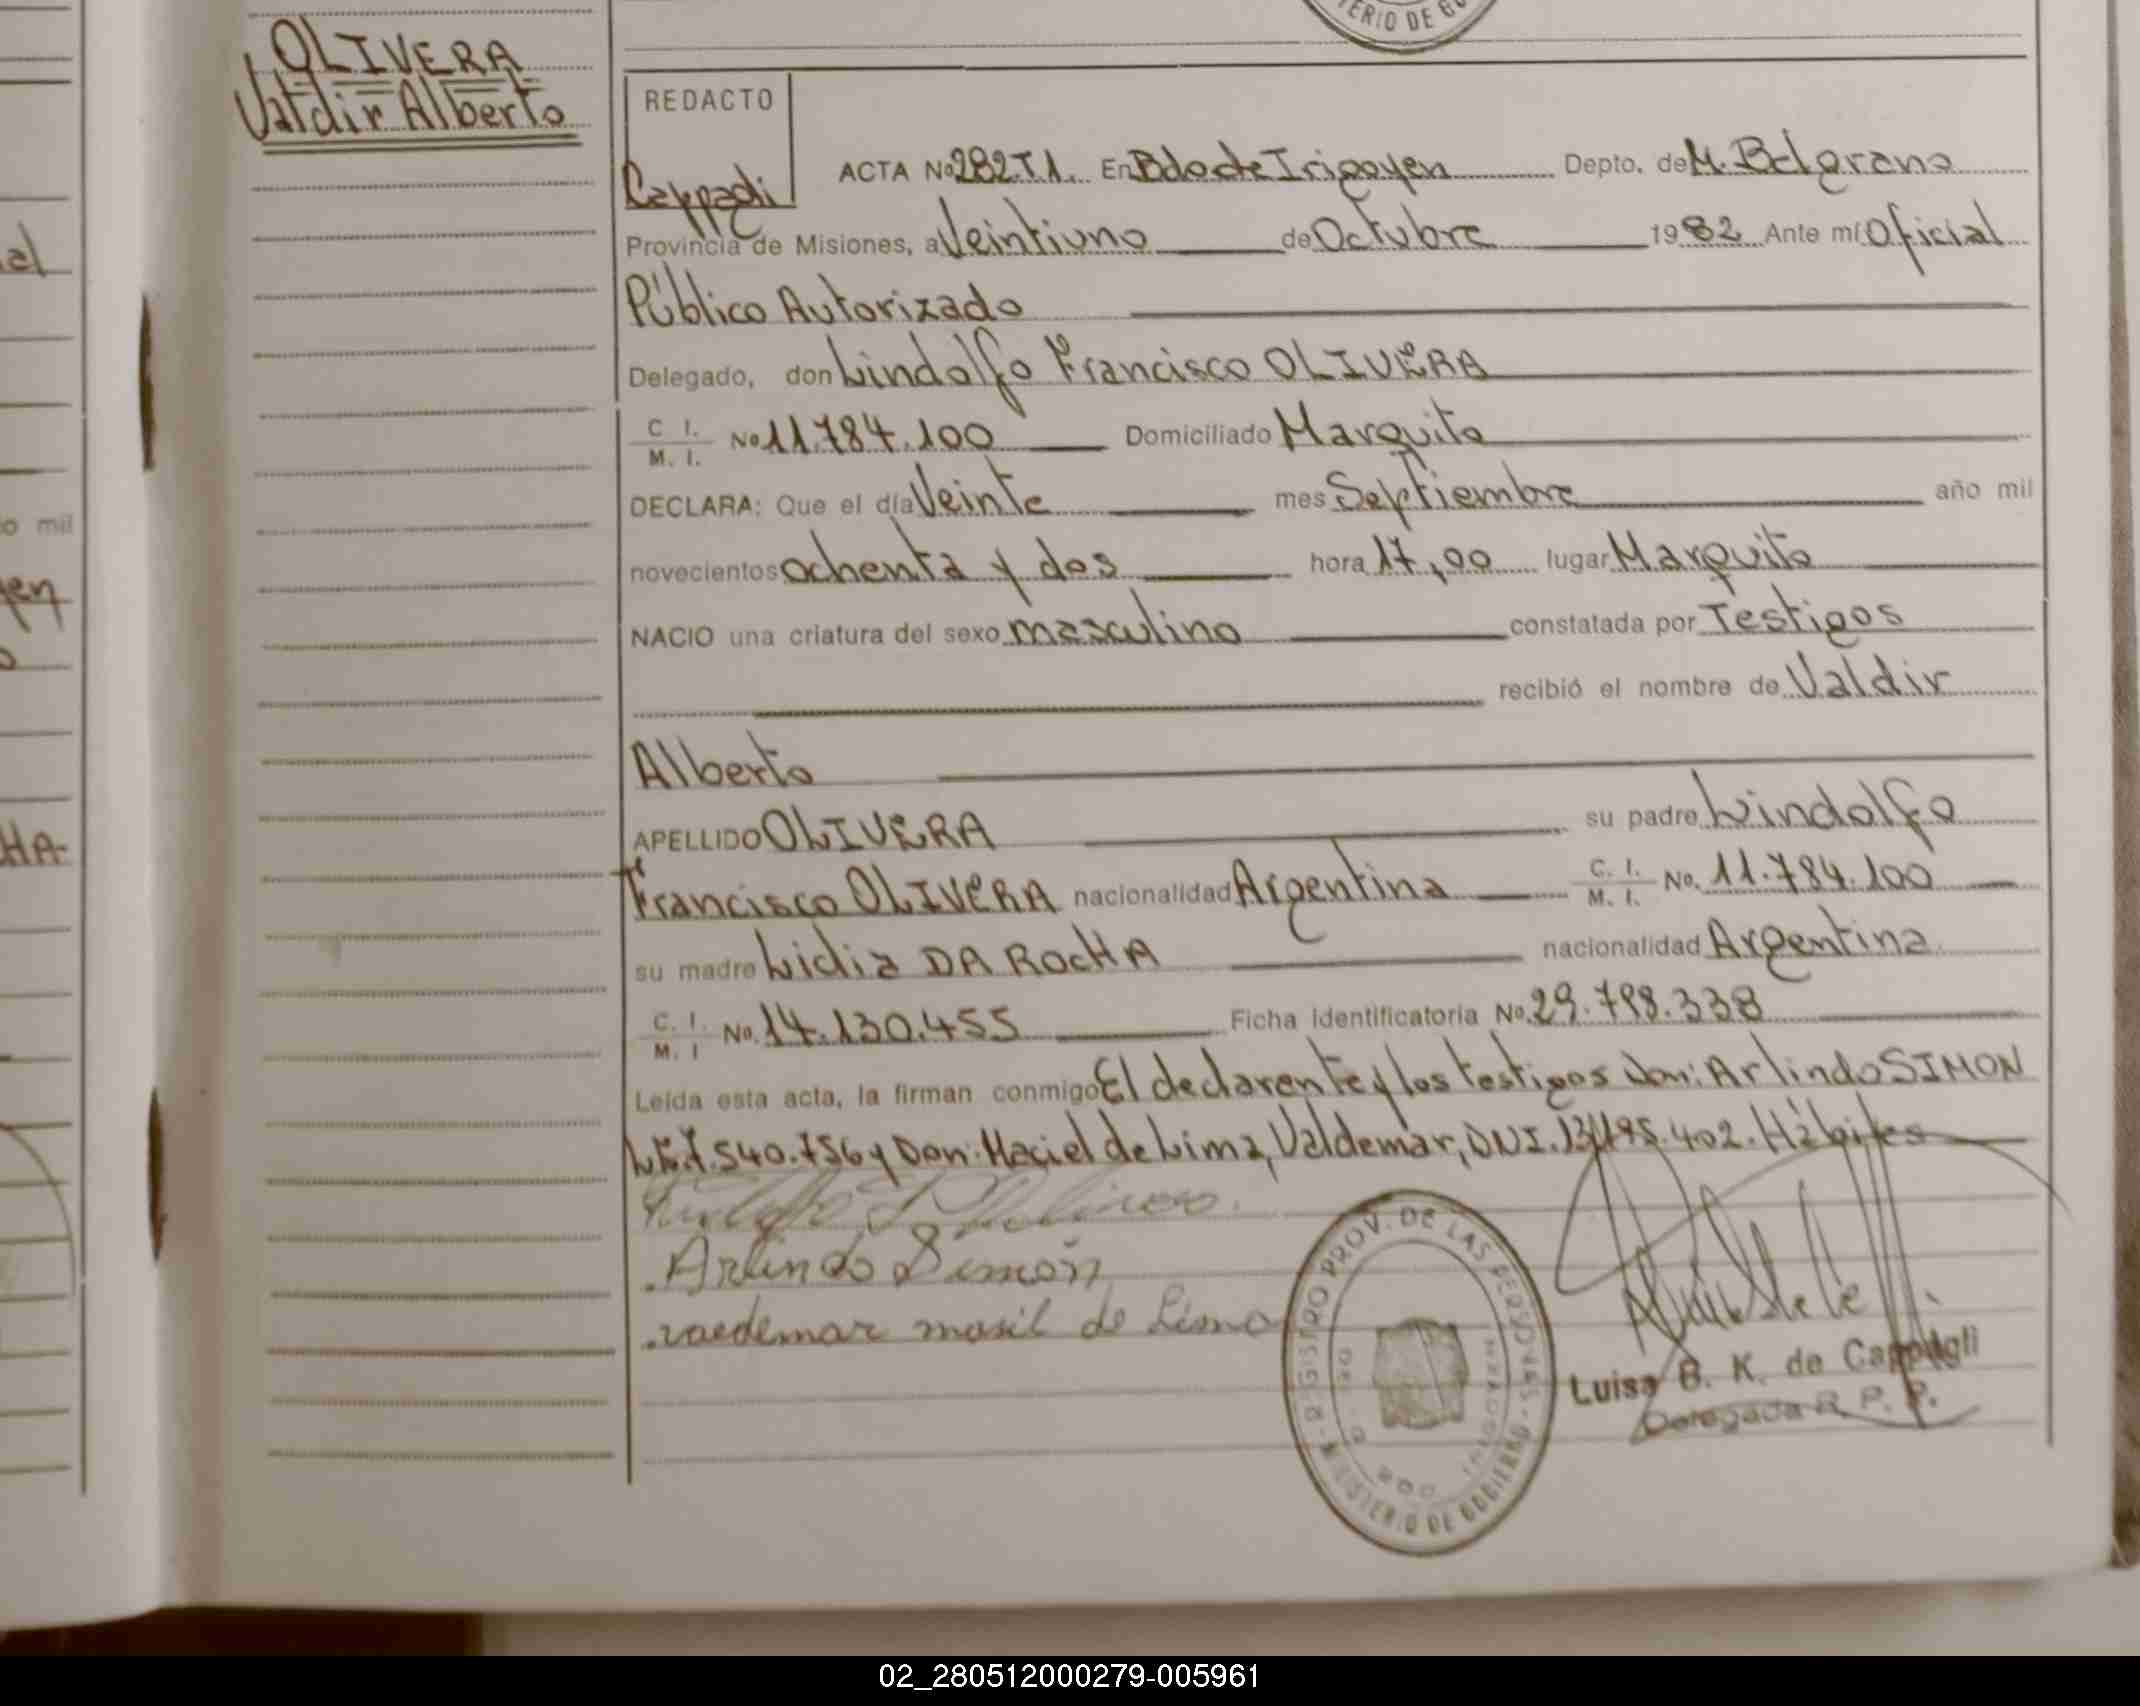 TERIO DE GO
OLIVERA
Valdir Alberto
REDACTO
Cappagli
ACTA No 282.T1. En Bdo de Irigoyen Depto. de M. Belgrano
Provincia de Misiones, a Veintiuno de Octubre 1982 Ante mí Oficial
Público Autorizado
Delegado, don Lindolfo Francisco OLIVERA
C. I. M. I. No 11.784.100 Domiciliado Marquito
DECLARA: Que el día Veinte mes Septiembre año mil
novecientos ochenta y dos hora 17,00 lugar Marquito
NACIO una criatura del sexo masculino constatada por Testigos
recibió el nombre de Valdir
Alberto
APELLIDO OLIVERA su padre Lindolfo
Francisco OLIVERA nacionalidad Argentina C. I. M. I. No. 11.784.100
su madre Lidia DA ROCHA nacionalidad Argentina
C. I. M. I No. 14.130.455 Ficha identificatoria No. 29.798.338
Leída esta acta, la firman conmigo El declarente y los testigos Don: Arlindo SIMON
L.E.7.540.756 y Don: Maciel de Lima, Valdemar, DNI. 402. Hábiles
Arlindo Simón
vaedemar masil de Lima
REGISTRO PROV. DE LAS PERSONAS - MINISTERIO DE GOBIERNO
Luisa B. K. de Cappagli
Delegada R. P. P.
al
o mil
yen
o
HA
02_280512000279-005961